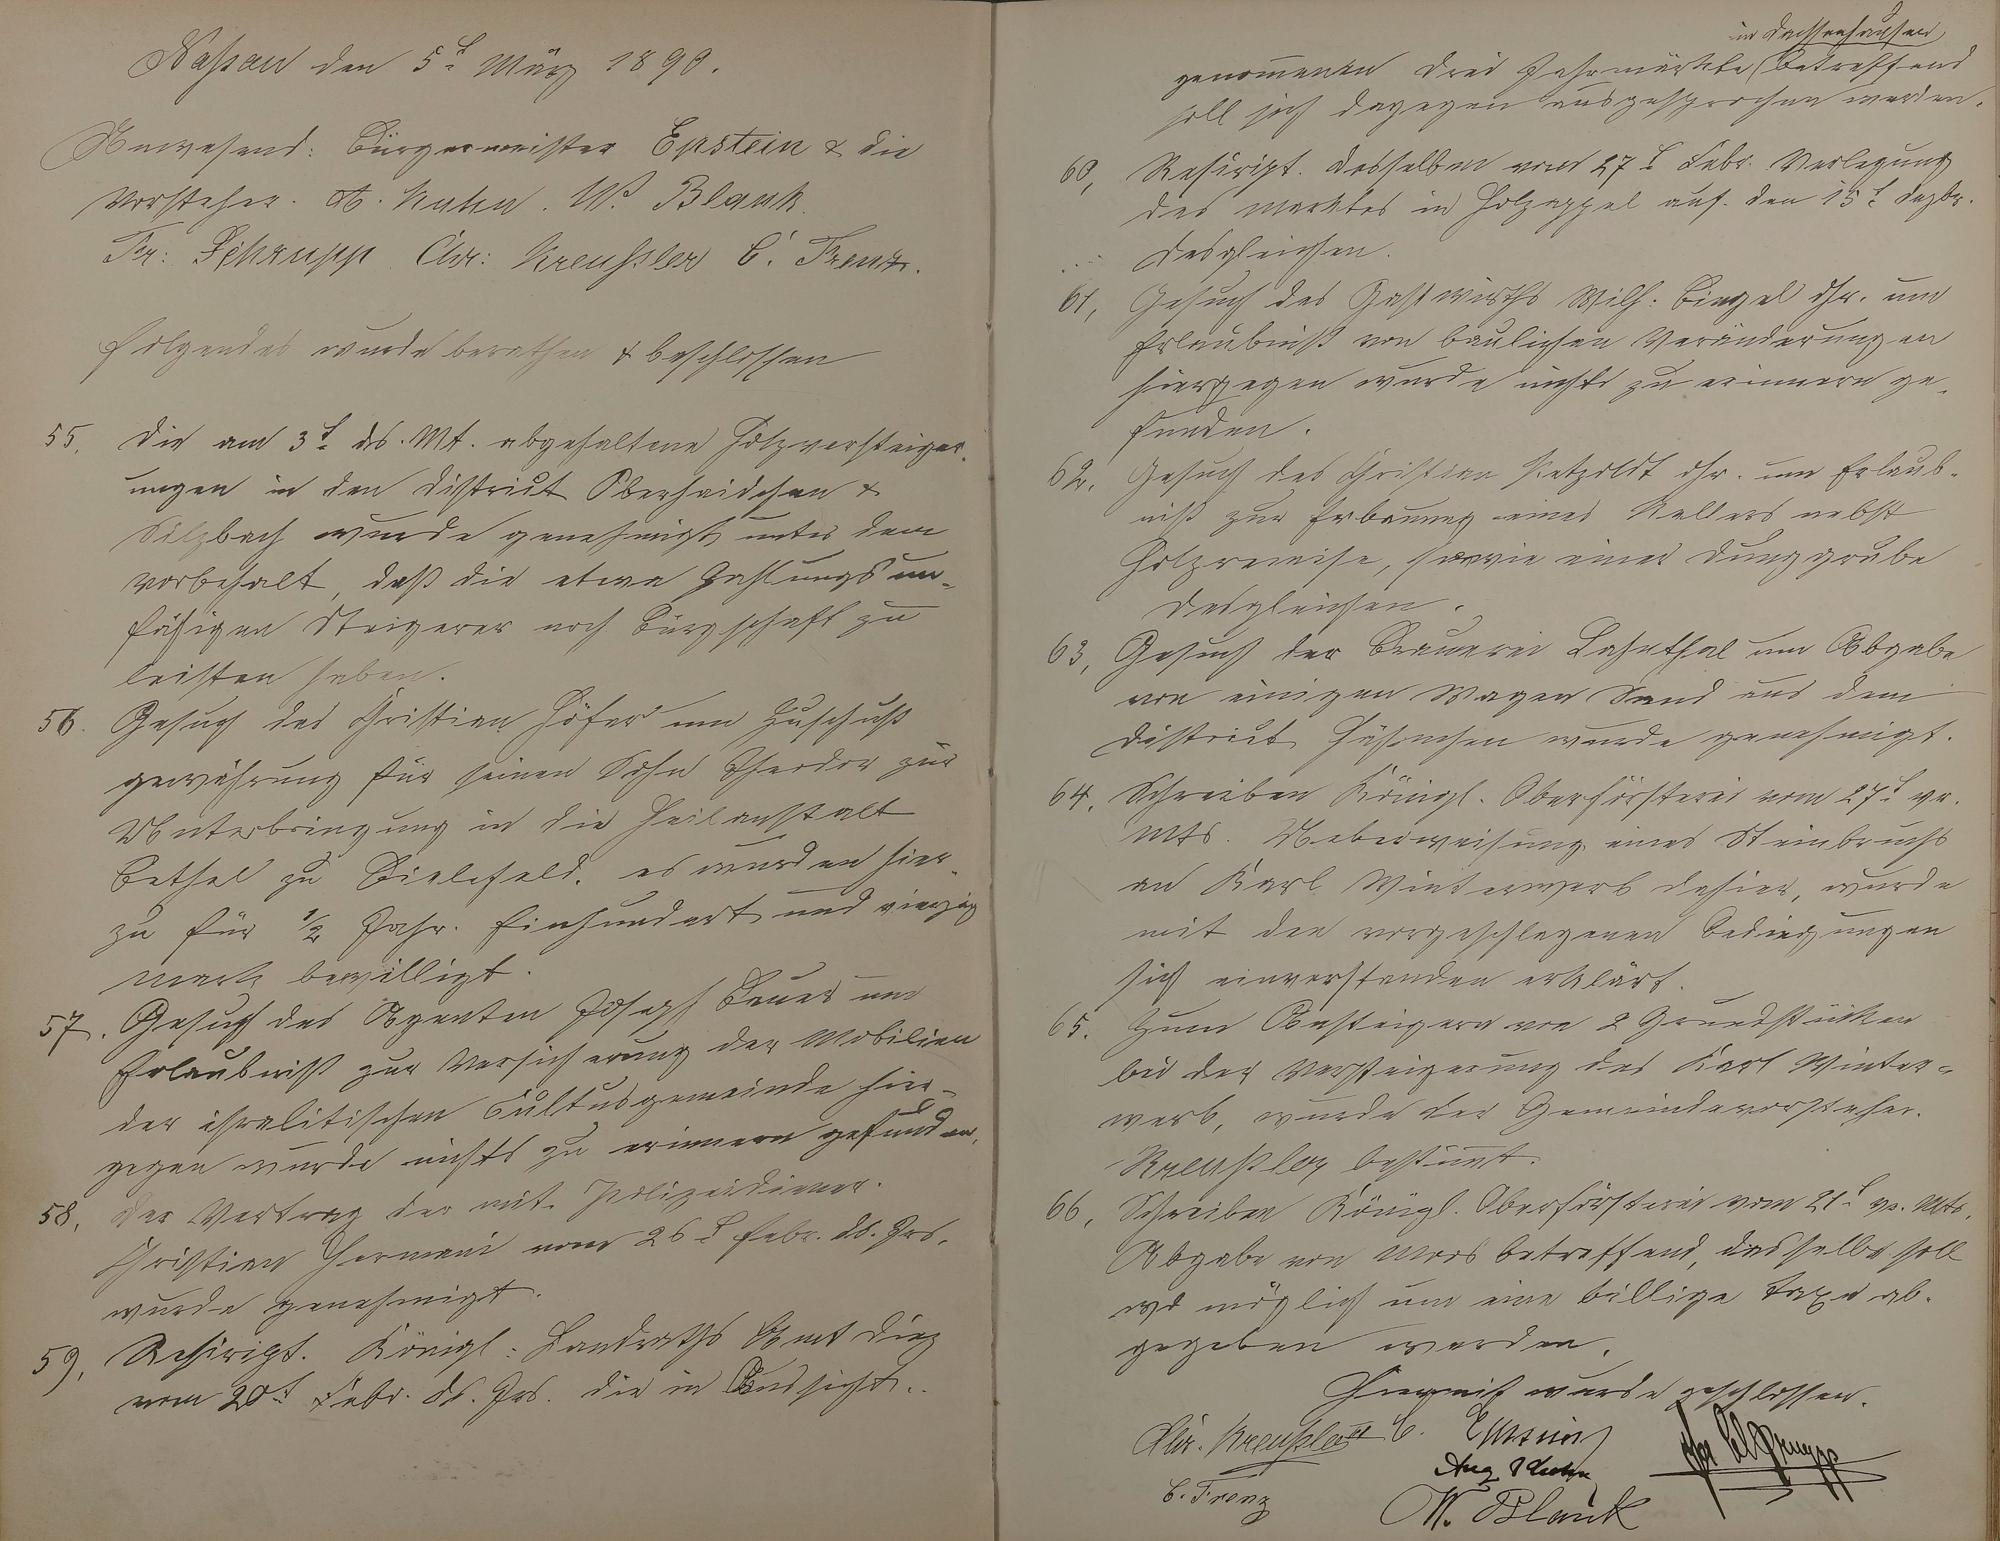 Nassau den 5t März 1890.
Anwesend: Bürgermeister Epstein & die
Vorsteher. A. Kuhn. W. Blank.
Fr: Schrupp Chr: Kreußler C. Frenz.
Folgendes wurde berathen & beschlossen
55. Die am 3t ds. Mt. abgehaltene Holzversteiger-
ungen in den District Oberhaidchen &
Silzbach wurde genehmigt unter dem
Vorbehalt, daß die etwa Zahlungsun-
fähigen Steigerer noch Bürgschaft zu
leisten haben.
56. Gesuch des Christian Höfer um Zuschuß
gewährung für seinen Sohn Theodor zur
Unterbringung in die Heilanstalt
Bethel zu Bielefeld. es wurden hier-
zu für 1/2 Jahr. Einhundert und vierzig
Mark bewilligt.
57. Gesuch des Agenten Joseph Bauer um
Erlaubniß zur Versicherung der Mobilien
der isralitischen Cultusgemeinde hier-
gegen wurde nichts zu erinnern gefunden.
58. Der Vertrag der mit. Polizeidiener.
Christian Hermani vom 26t Febr. ds. Jrs.
wurde genehmigt.
59, Rescript. Königl: Landraths Amt Diez
vom 20t Febr. ds. Jrs. die in Aussicht..
in Dachsenhausen
genommenen drei Jahrmärkte betreffend
soll sich dagegen ausgesprochen werden.
60, Rescript. desselben vom 27t Febr. Verlegung
des Marktes in Holzappel auf. den 15t Dezbr.
desgleichen.
61, Gesuch des Gastwirths Wilh: Bingel dhr. um
Erlaubniß von baulichen Veränderungen
hiergegen wurde nichts zu erinnern ge-
funden.
62. Gesuch des Christian Petzoldt dhr. um Erlaub-
niß zur Erbauung eines Kellers nebst
Holzremise, sowie einer Dunggrube
desgleichen.
63, Gesuch der Brauerei Lahnthal um Abgabe
von einigen Wagen Sand aus dem
District Hähnchen wurde genehmigt.
64. Schreiben Königl. Oberförsterei vom 27t vr.
Mts. Ueberweisung eines Steinbruchs
an Karl Winterwerb dahier, wurde
mit den vorgeschlagenen Bedingungen
sich einverstanden erklärt.
65. Zum Ansteigern von 2 Grundstücken
bei der Versteigerung des Karl Winter-
werb, wurde der Gemeindevorsteher.
Kreußler bestimmt.
66, Schreiben Königl. Oberförsterei vom 21t vr. Mts.
Abgabe von Moos betreffend, dasselbe soll
wo möglich um eine billige Taxe ab-
gegeben werden.
Hiermit wurde geschlossen.
Chr. Kreußler II C. Epstein
Aug Kuhn
C. Frenz
W. Blank